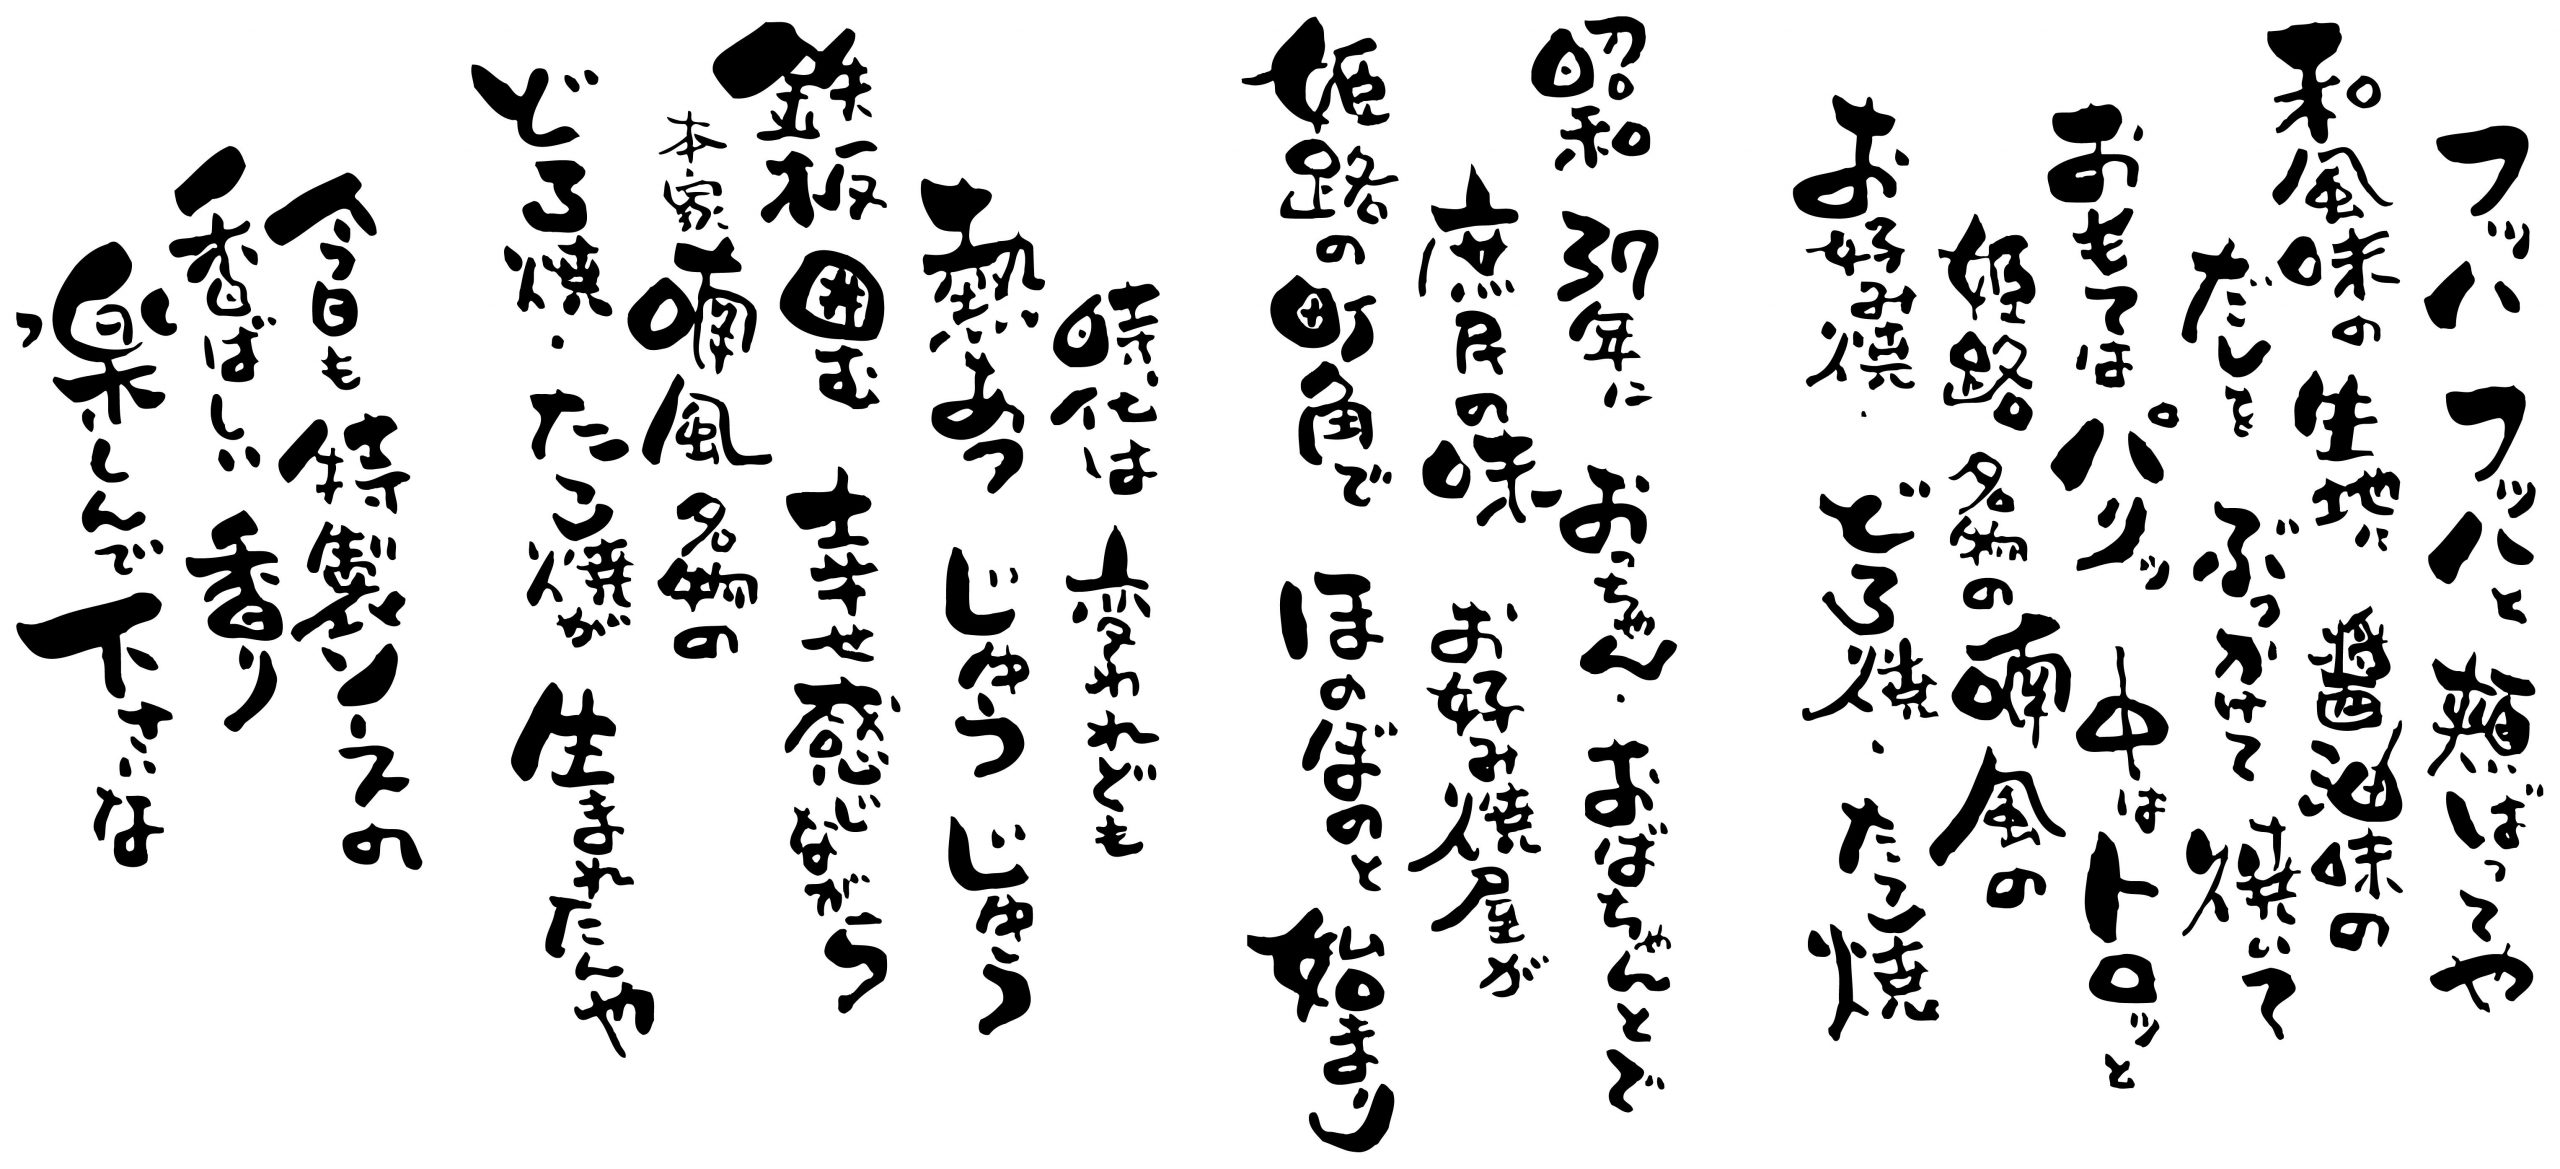 フッハフッハと頬ばってや
和風味の生地に醤油味の
だしをぶっかけて焼いて
おもてはパリッ中はトロッと
姫路名物の喃風の
お好み焼・どろ焼・たこ焼
昭和37年におっちゃん・おばちゃんとで
庶民の味お好み焼屋が
姫路の町角でほのぼのと始まり
時代は変われども
熱あつじゅうじゅう
鉄板囲む幸せ感じながら
本家喃風名物の
どろ焼・たこ焼が生まれたんや
今日も特製ソースの
香ばしい香り
楽しんで下さいな